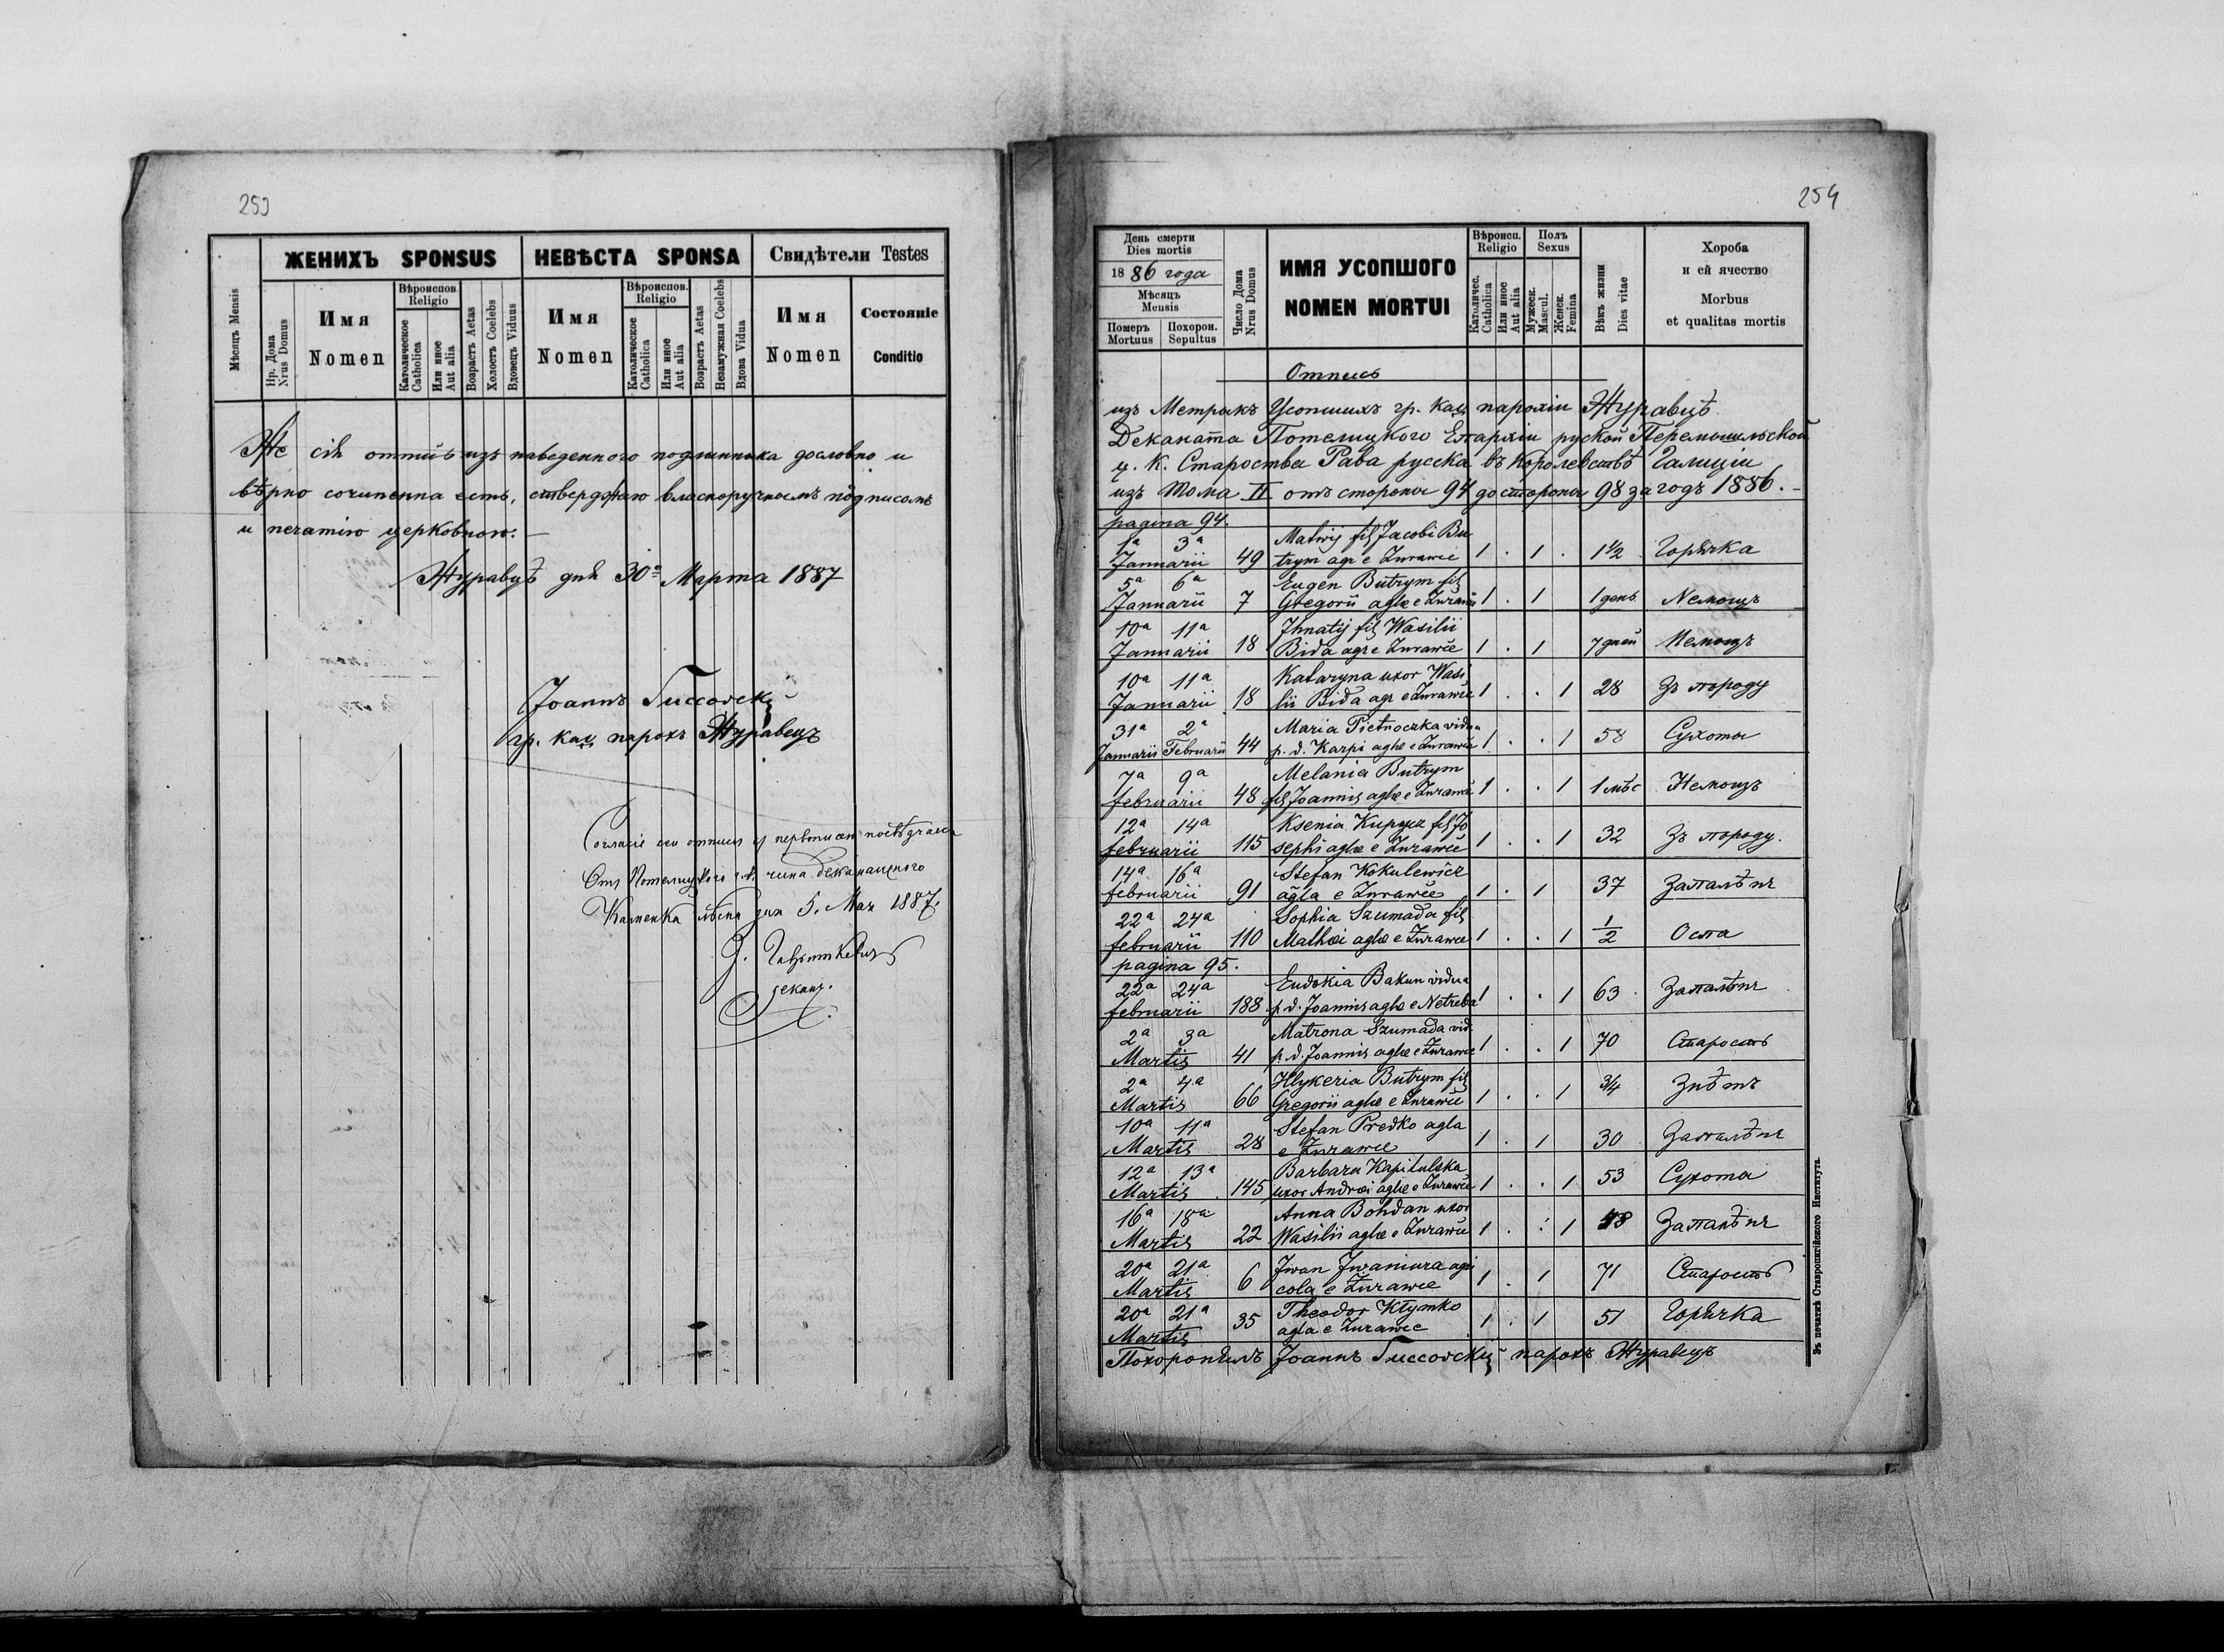 253
ЖЕНИХЪ SPONSUS
НЕВѢСТА SPONSA
Свидѣтели Testes
Мѣсяцъ Mensis
Нр. Дома
Nrus Domus
Имя
Nomen
Вѣроиспов.
Religio
Католическое
Catholica
Или иное
Aut alia
Возрастъ Aetas
Холостъ Coelebs
Вдовецъ Viduus
Имя
Nomen
Вѣроиспов.
Religio
Католическое
Catholica
Или иное
Aut alia
Возрастъ Aetas
Незамужная Coelebs
Вдова Vidua
Имя
Nomen
Состояніе
Conditio
Же сія отпись изъ наведенного подлинника дословно и
вѣрно сочиненна есть, стверджаю власноручнымъ подписомъ
и печатію церковною. —
Журавцѣ дня 30а Марта 1887
Іоаннъ
гр. кат. парохъ Журавецъ
отпись
5. Мая 1887.
деканъ.
254
День смерти
Dies mortis
1886 года
Мѣсяцъ
Mensis
Померъ
Mortuus
Похорон.
Sepultus
Число Дома
Nrus Domus
ИМЯ УСОПШОГО
NOMEN MORTUI
Вѣроисп.
Religio
Католичес.
Catholica
Или иное
Aut alia
Полъ
Sexus
Мужеск.
Mascul.
Женск.
Femina
Вѣкъ жизни
Dies vitae
Хороба
и ей ячество
Morbus
et qualitas mortis
Отпись
изъ Метрикъ Усопшихъ гр. кат. парохіи Журавцѣ
Деканата Потелицкого Епархіи руской Перемышльской
ц. к. Староства Рава русска въ Королевствѣ Галиціи
изъ Тома II отъ стороны 94 до стороны 98 за годъ 1886. —
pagina 94.
1a 3a Matwij fil Jacobi Bu
Januarii 49 trym agr e Żurawce 1 . 1 . 1½ Горячка
5a 6a Eugen Butrym fil
Januarii 7 Gregorii aglae e Żurawce 1 . 1 1 день Немощъ
10a 11a Ihnatij fil Wasilii
Januarii 18 Bida agr e Żurawce 1 . 1 7 дней Немощъ
10a 11a Kataryna uxor Wasi
Januarii 18 lii Bida agr e Żurawce 1 . . 1 28 Зъ породу
31a 2a Maria Pietnoczka vidua
Januarii Februarii 44 p. d. Karpi aglae e Żurawce 1 . . 1 58 Сухоты
7a 9a Melania Butrym
februarii 48 fil Joannis aglae e Żurawce 1 . . 1 1 мѣс Немощъ
12a 14a Ksenia fil Jo
februarii 115 sephi aglae e Żurawce 1 . . 1 32 Зъ породу.
14a 16a Stefan Kokulewicz
februarii 91 agla e Żurawce 1 . 1 37 Запалѣнє
22a 24a Sophia Szumada fil
februarii 110 Mathæi aglae e Żurawce 1 . . 1 1/2 Оспа
pagina 95.
22a 24a Eudokia Bakun vidua
februarii 188 p. d. Joannis aglae e Netreba 1 . . 1 63 Запалѣнє
2a 3a Matrona Szumada vid.
Martis 41 p. d. Joannis aglae e Żurawce 1 . . 1 70 Старость
2a 4a Hlykeria Butrym fil
Martis 66 Gregorii aglae e Żurawce 1 . . 1 3/4
10a 11a Stefan Predko agla
Martis 28 e Żurawce 1 . 1 30 Запалѣнє
12a 13a Barbara Kapitulska
Martis 145 uxor Andræi aglae e Żurawce 1 . . 1 53 Сухота
16a 18a Anna Bohdan uxor
Martis 22 Wasilii aglae e Żurawce 1 . . 1 48 Запалѣнє
20a 21a Iwan Iwaniura agri
Martis 6 cola e Żurawce 1 . 1 71 Старость
20a 21a Theodor Kłymko
Martis 35 agla e Żurawce 1 . 1 51 Горячка
Похоронилъ Іоаннъ парохъ Журавецъ
Зъ печатнѣ Ставропигійского Института.